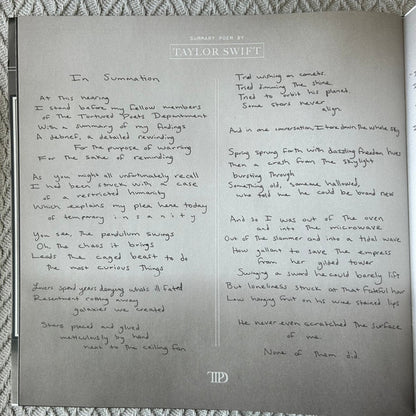 SUMMARY POEM BY
TAYLOR SWIFT
In Summation
At this hearing
I stand before my fellow members
of The Tortured Poets Department
With a summary of my findings
A debrief, a detailed rewinding
For the purpose of warning
For the sake of reminding
As you might all unfortunately recall
I had been struck with a case
of a restricted humanity
Which explains my plea here today
of temporary insanity
You see, the pendulum swings
Oh, the chaos it brings
Leads the caged beast to do
the most curious things
Lovers spend years denying what's ill fated
Resentment rotting away
galaxies we created
Stars placed and glued
meticulously by hand
next to the ceiling fan
Tried wishing on comets.
Tried dimming the shine.
Tried to orbit his planet.
Some stars never
align.
And in one conversation, I tore down the whole sky
Spring sprung forth with dazzling freedom hues
Then a crash from the skylight
bursting through
Something old, someone hallowed,
who told me he could be brand new
And so I was out of the oven
and into the microwave
Out of the slammer and into a tidal wave
How gallant to save the empress
from her gilded tower
Swinging a sword he could barely lift
But loneliness struck at that fateful hour
Low hanging fruit on his wine stained lips
He never even scratched the surface
of me.
None of them did.
TTPD